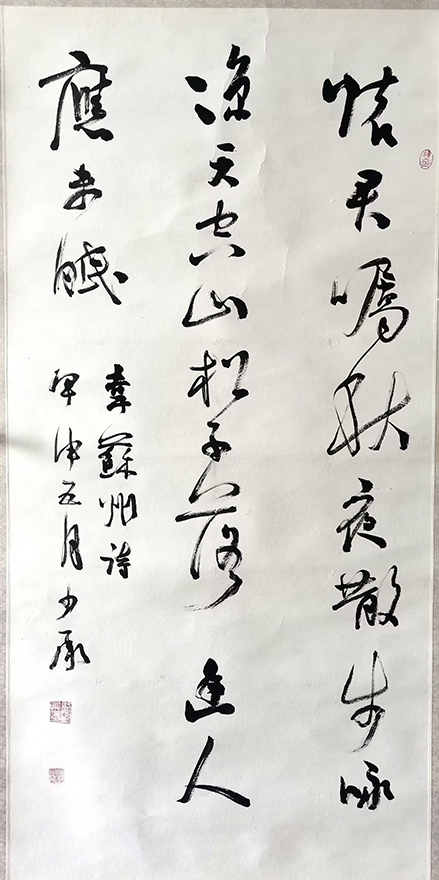 懷君嘱秋夜散步咏
涼天空山松子落幽人
應未眠
韋蘇州詩
甲申五月少承